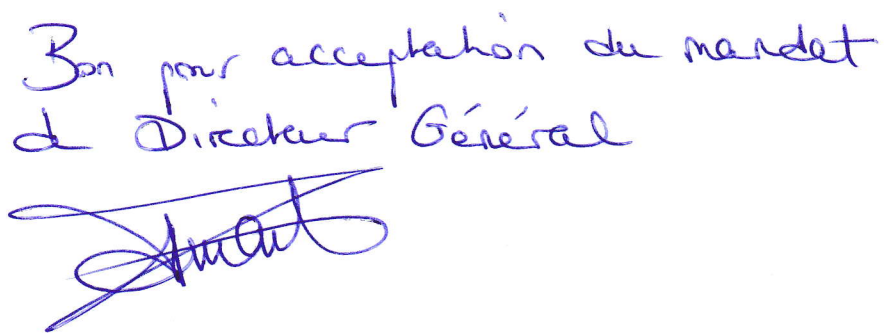 Bon pour acceptation du mandat
de Directeur Général